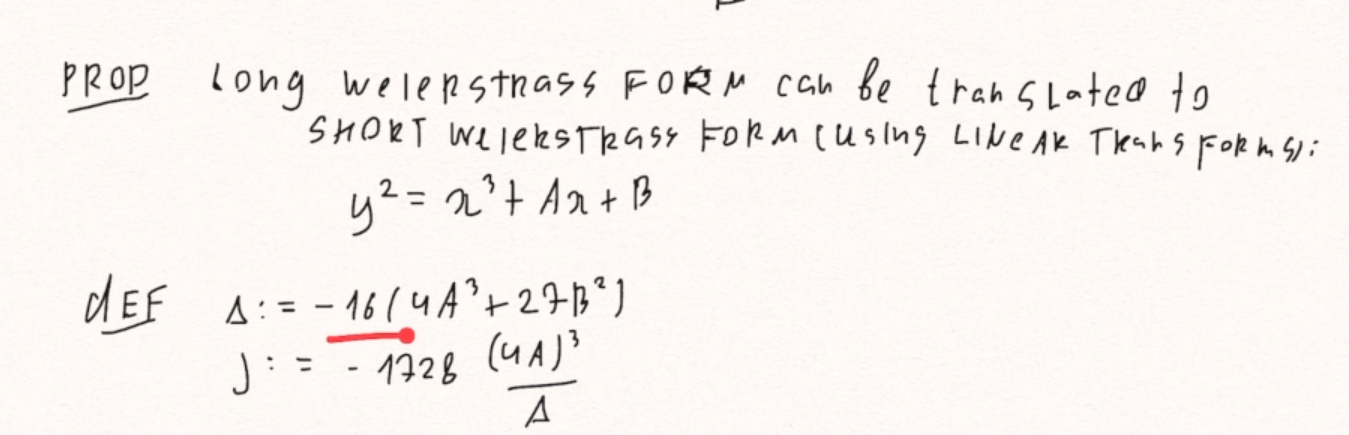 PROP Long Weierstrass FORM can be translated to
SHORT Weierstrass FORM (using LINEAR Transforms):
y² = x³ + Ax + B
dEF Δ := -16(4A³+27B²)
j := -1728 (4A)³/Δ